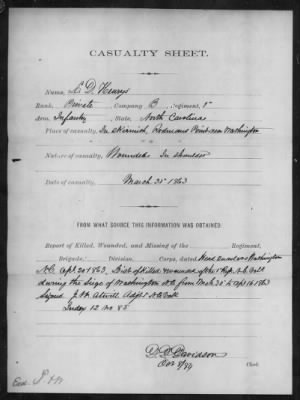 CASUALTY SHEET.
Name, D. Henry
Rank, Private Company B Regiment, 1st
Arm, Infantry State, North Carolina
Place of casualty, In skirmish, Rodmans Point near Washington
Nature of casualty, Wounded In shoulder
Date of casualty, March 31st 1863
FROM WHAT SOURCE THIS INFORMATION WAS OBTAINED.
Report of Killed, Wounded, and Missing of the Regiment,
Brigade, Division, Corps, dated Head Quarters Washington
N.C. Apl 20 1863, List of Killed & wounded of the 1st Regt N.C. Vols
during the Siege of Washington N.C. from Mch 30 to Apl 16 1863
Signed J. H.
12
Davidson
Clerk.
Exd.